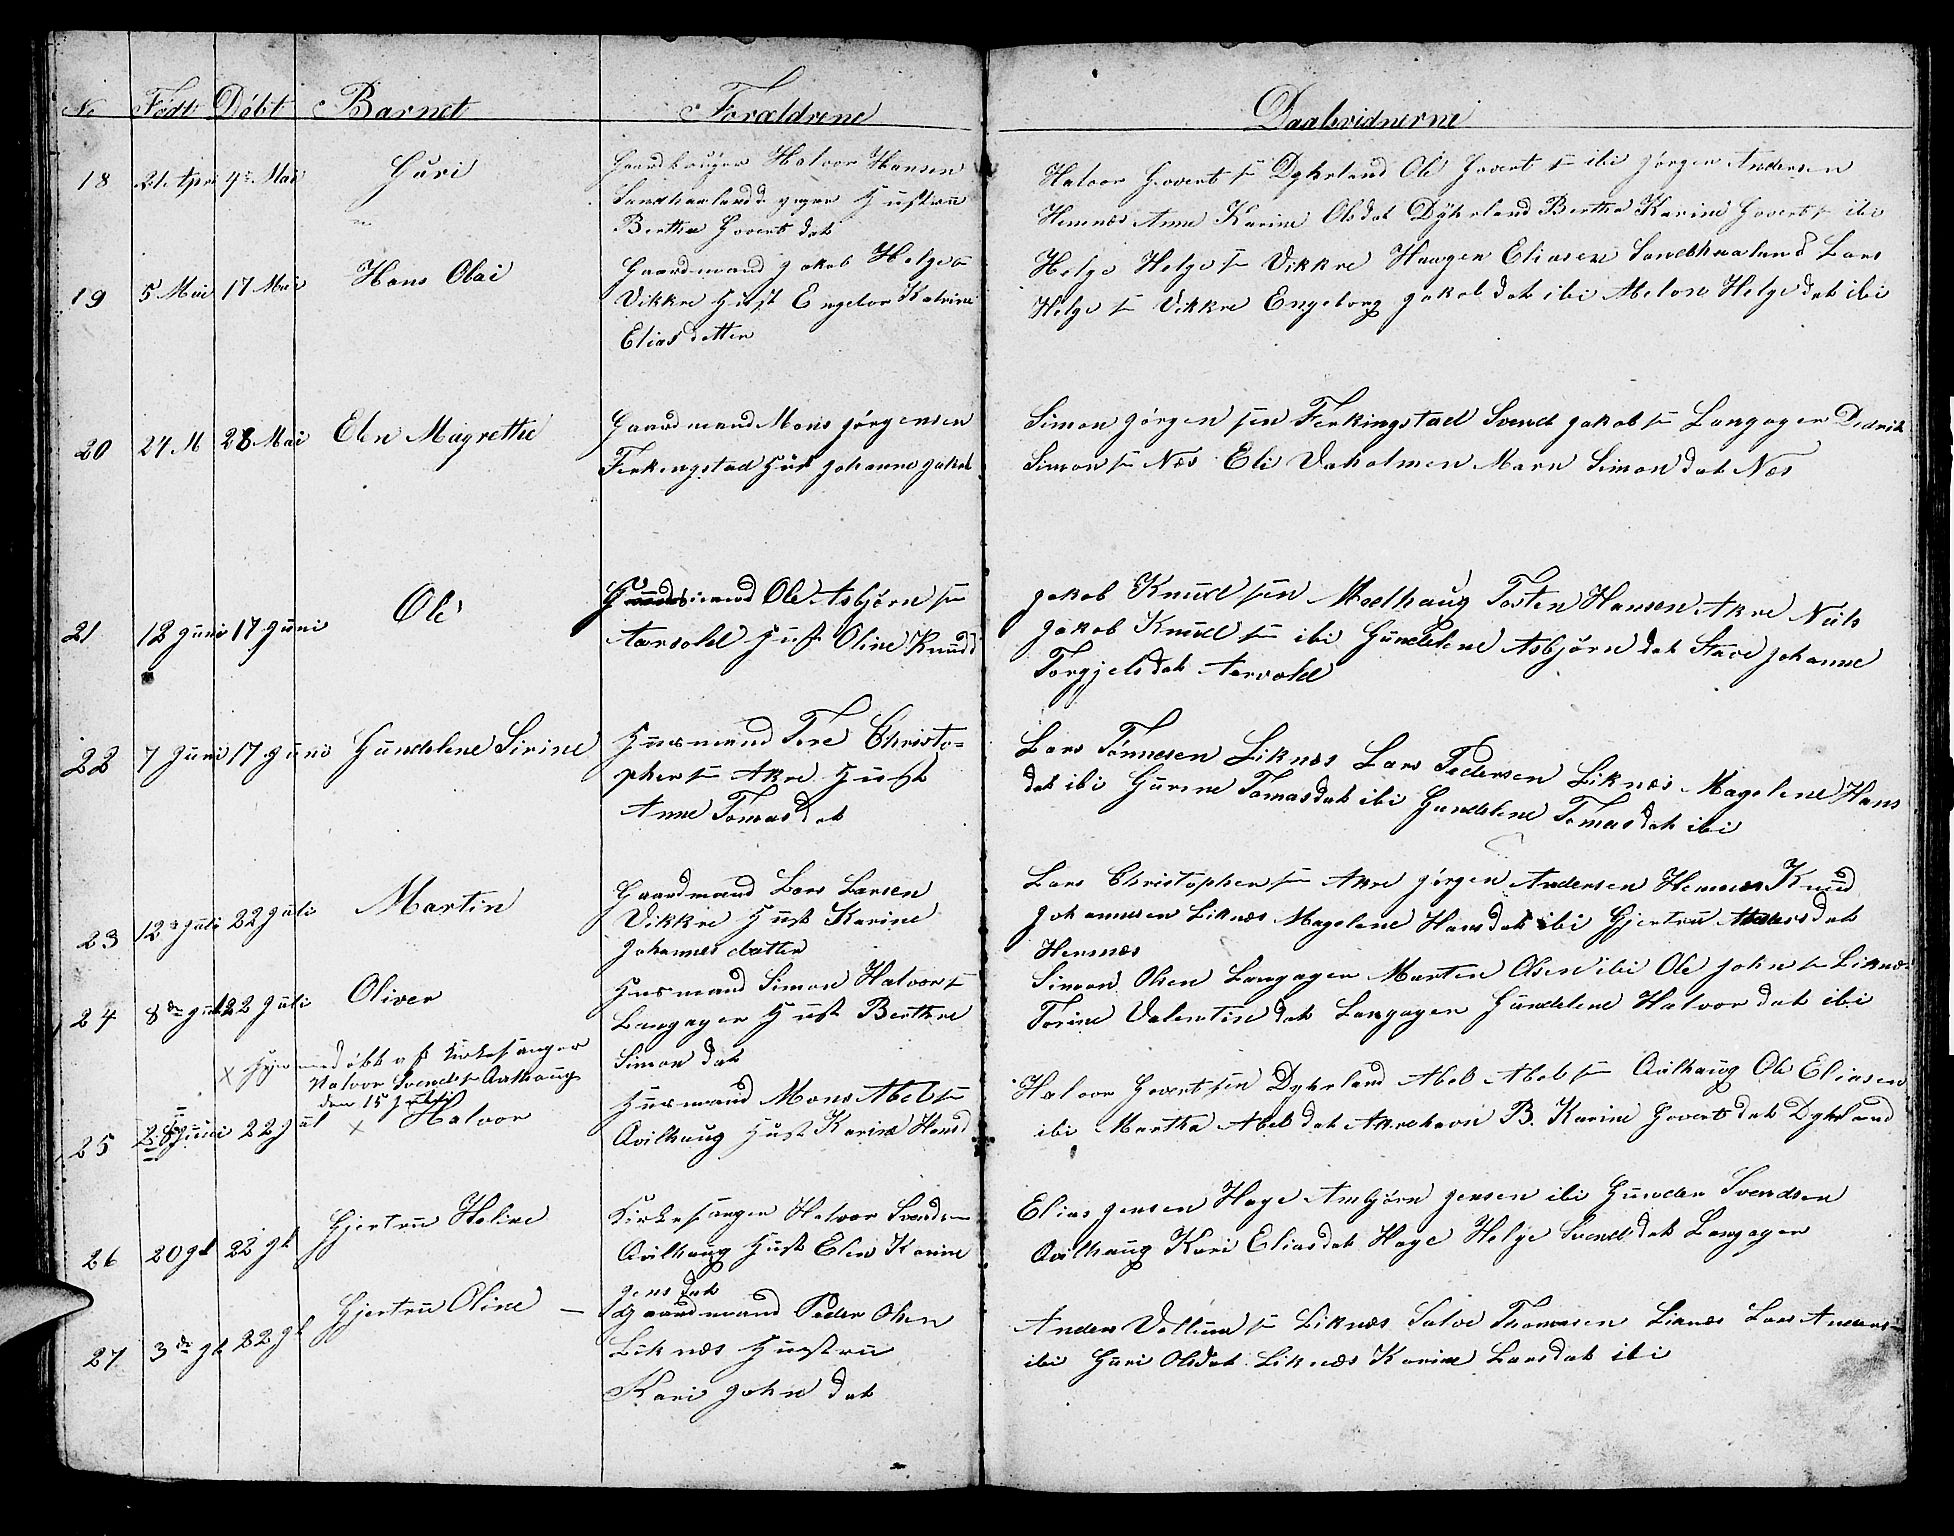 No Født Døbt Barnet Forældrene Daabvidnerne
18 21. Apri 4de Mai Guri Gaardbruger Halvor Hansen
Sandhaaland Hustru
Berthe Govertsdat
Halvor Govert sn Dyhrland Ole Govert sn ibi Jørgen Andersen
Hemnæs Anne Karine Olsdat Dyhrland Bertha Karine Goverts ibi
19 5 Mai 17 Mai Hans Olai Gaardmand Jakob Helge sn
Vikkre Hust Engebor Katrine
Elias datter
Helge Helge sn Vikkre Haagen Eliasen Sandhaaland Lars
Helge sn Vikkre Engeborg Jakobdat ibi Melosn Helgedat ibi
20 24 M 28 Mai Elen Magrethe Gaardmand Mons Jørgensen
Ferkengstad Hus Johanne Jakob
Simon Jørgen sen Ferkingstad Svend Jakob sn Langager Dedrik
Simon sn Næs Eli Vaholmen Marn Simon dat Næs
21 12 Juni 17 Juni Ole Gaardmand Ole Asbjørn sn
Aarvold Hust Oline Knudd
Jakob Knud sen Medhaug Tosten Hansen Akre Nils
Jakob Knud sn ibi Gundelene Asbjørn dat Stave Johanne
Torgjelsdat Aarvold
22 7 Juni 17 Juni Gundelene Sirine Husmand Tore Christo=
pher sn Akre Hust
Anne Tomasdat
Lars Tønnesen Liknæs Lars Pedersen Liknæs Magelene Hans
dat ibi Gurine Tomasdat ibi Gundelene Tomasdat ibi
23 12te Juli 22 Juli Martin Gaardmand Lars Larsen
Vikkre Hust Karine
Johannes datter
Lars Christopher sn Akre Jørgen Andersen Hemnæs Knud
Johannesen Liknæs Magelene Hansdat ibi Gjertru dat
Hemnæs
24 8de Juli 22 Juli Oliver Husmand Simon Halvor sn
Langager Hust Berthe
Simon dat
Simon Olsen Langager Marten Olsen ibi Ole John sn Liknæs
Torine Valentin dat Langager Gundelene Halvor dat ibi
x Hjemmedøbt af Kirkesanger
Halvor Svends Avilhaug
den 15 Juli
25 28 Juni 22 Jul x Halvor Husmand Mons Abel sn
Avilhaug Hust Karine Hansd
Halvor Govert sen Dyhrland Abel Abel sn Avilhaug Ole Eliasen
ibi Martha Abelsdat Akrehavn B. Karine Govertsdat Dyhrland
26 20 Jl 22 Jl Gjertru Heline Kirkesanger Halvor Svends
Avilhaug Hust Elen Karine
Jens Dat
Elias Jensen Hage Ambjørn Jensen ibi Gunder Svendsen
Avilhaug Kari Eliasdat Hage Helge Svendsdat Langager
27 3de Jl 22 Jl Gjertru Oline Gaardmand Peder Olsen
Liknæs Hustru
Kari John dat
Anders Vellum sn Liknæs Salve Thomasen Liknæs Lars Anders
ibi Guri Olsdat Liknæs Karine Larsdat ibi